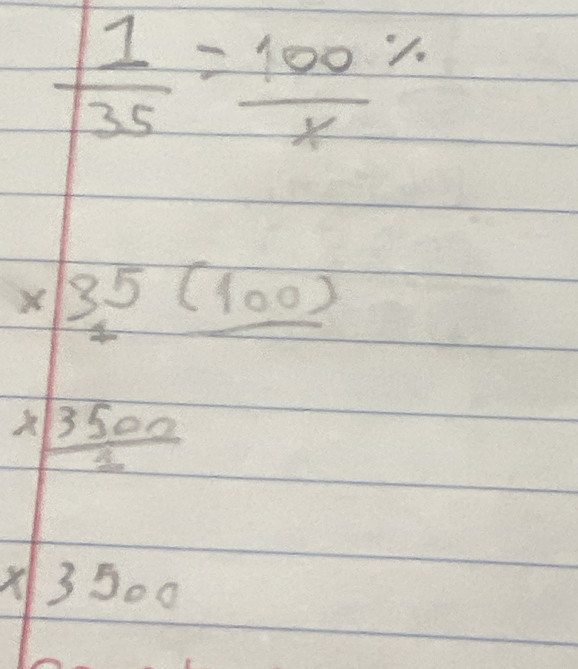 1 = 100 %
35 x
x 35 (100)
1
x 3500
1
x 3500